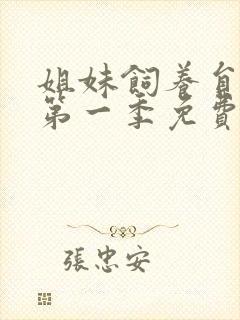 姐妹飼養
第一季免費
張忠安